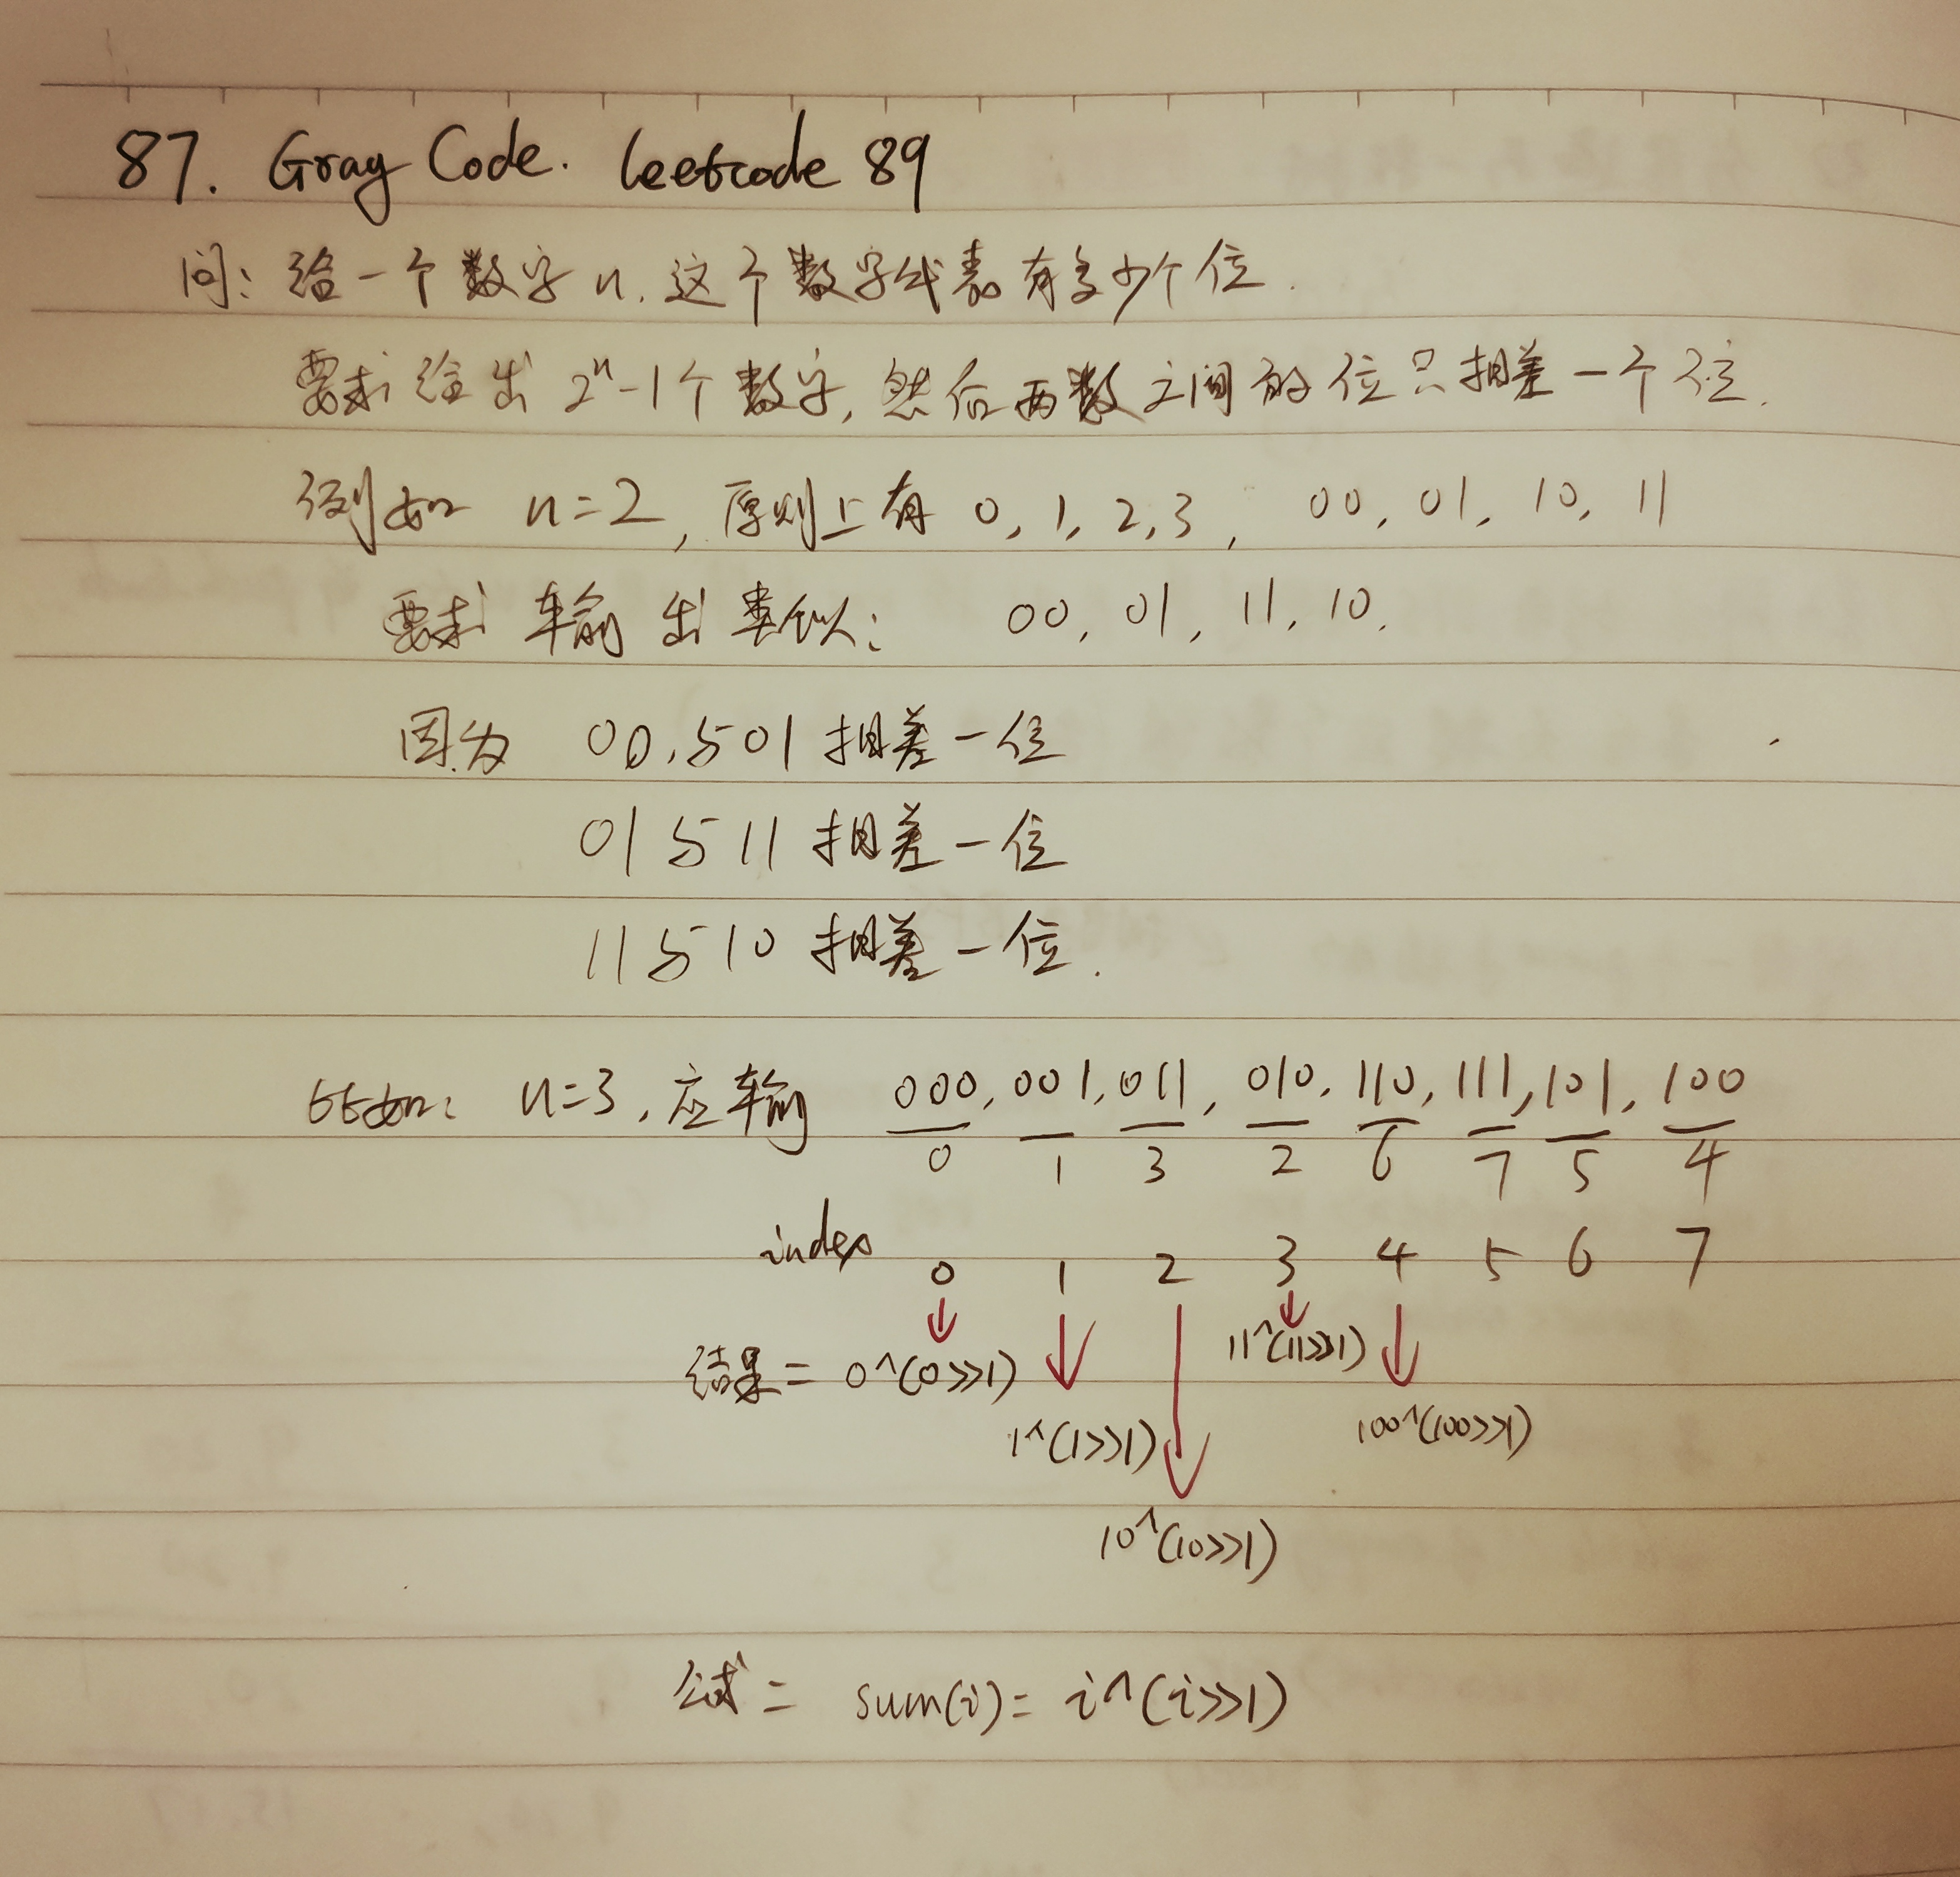 87. Gray Code. leetcode 89
问: 给一个数字 n. 这个数字代表有多少个位.
要求给出 2ⁿ-1个数字, 然后两数之间的位只相差一个位.
例如 n=2, 原则上有 0, 1, 2, 3, 00, 01, 10, 11
要求输出类似: 00, 01, 11, 10.
因为 00, 与01相差一位
01与11 相差一位
11与10 相差一位.
比如: n=3, 应输 000, 001, 011, 010, 110, 111, 101, 100
0 1 3 2 6 7 5 4
index 0 1 2 3 4 5 6 7
结果= 0^(0>>1) 11^(11>>1)
1^(1>>1) 100^(100>>1)
10^(10>>1)
公式= sum(i)= i^(i>>1)